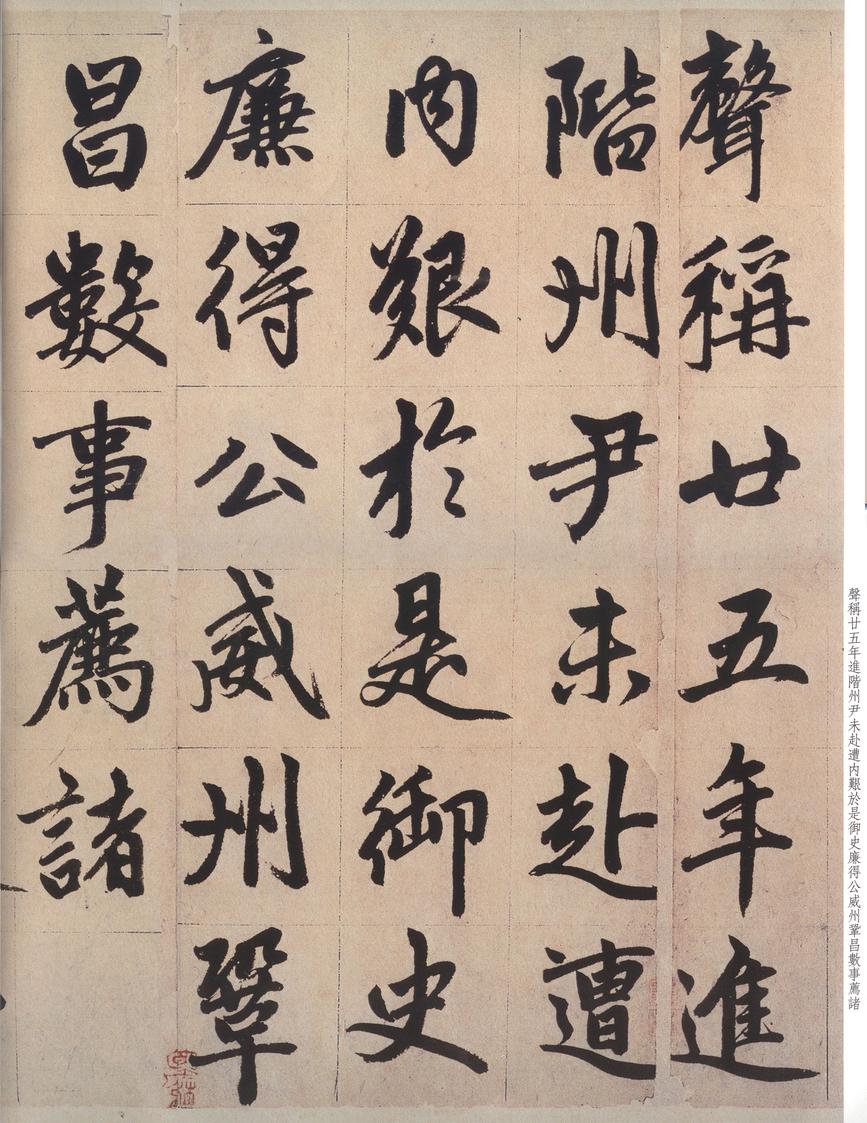 聲稱廿五年進
階州尹未赴遭
内艱於是御史
廉得公威州鞏
昌數事薦諸
聲稱廿五年進階州尹未赴遭内艱於是御史廉得公威州鞏昌數事薦諸